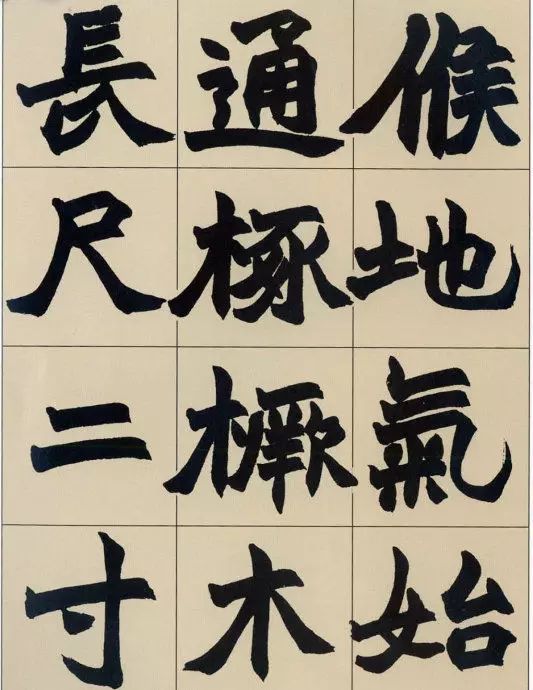 候地氣始
通椓橛木
長尺二寸